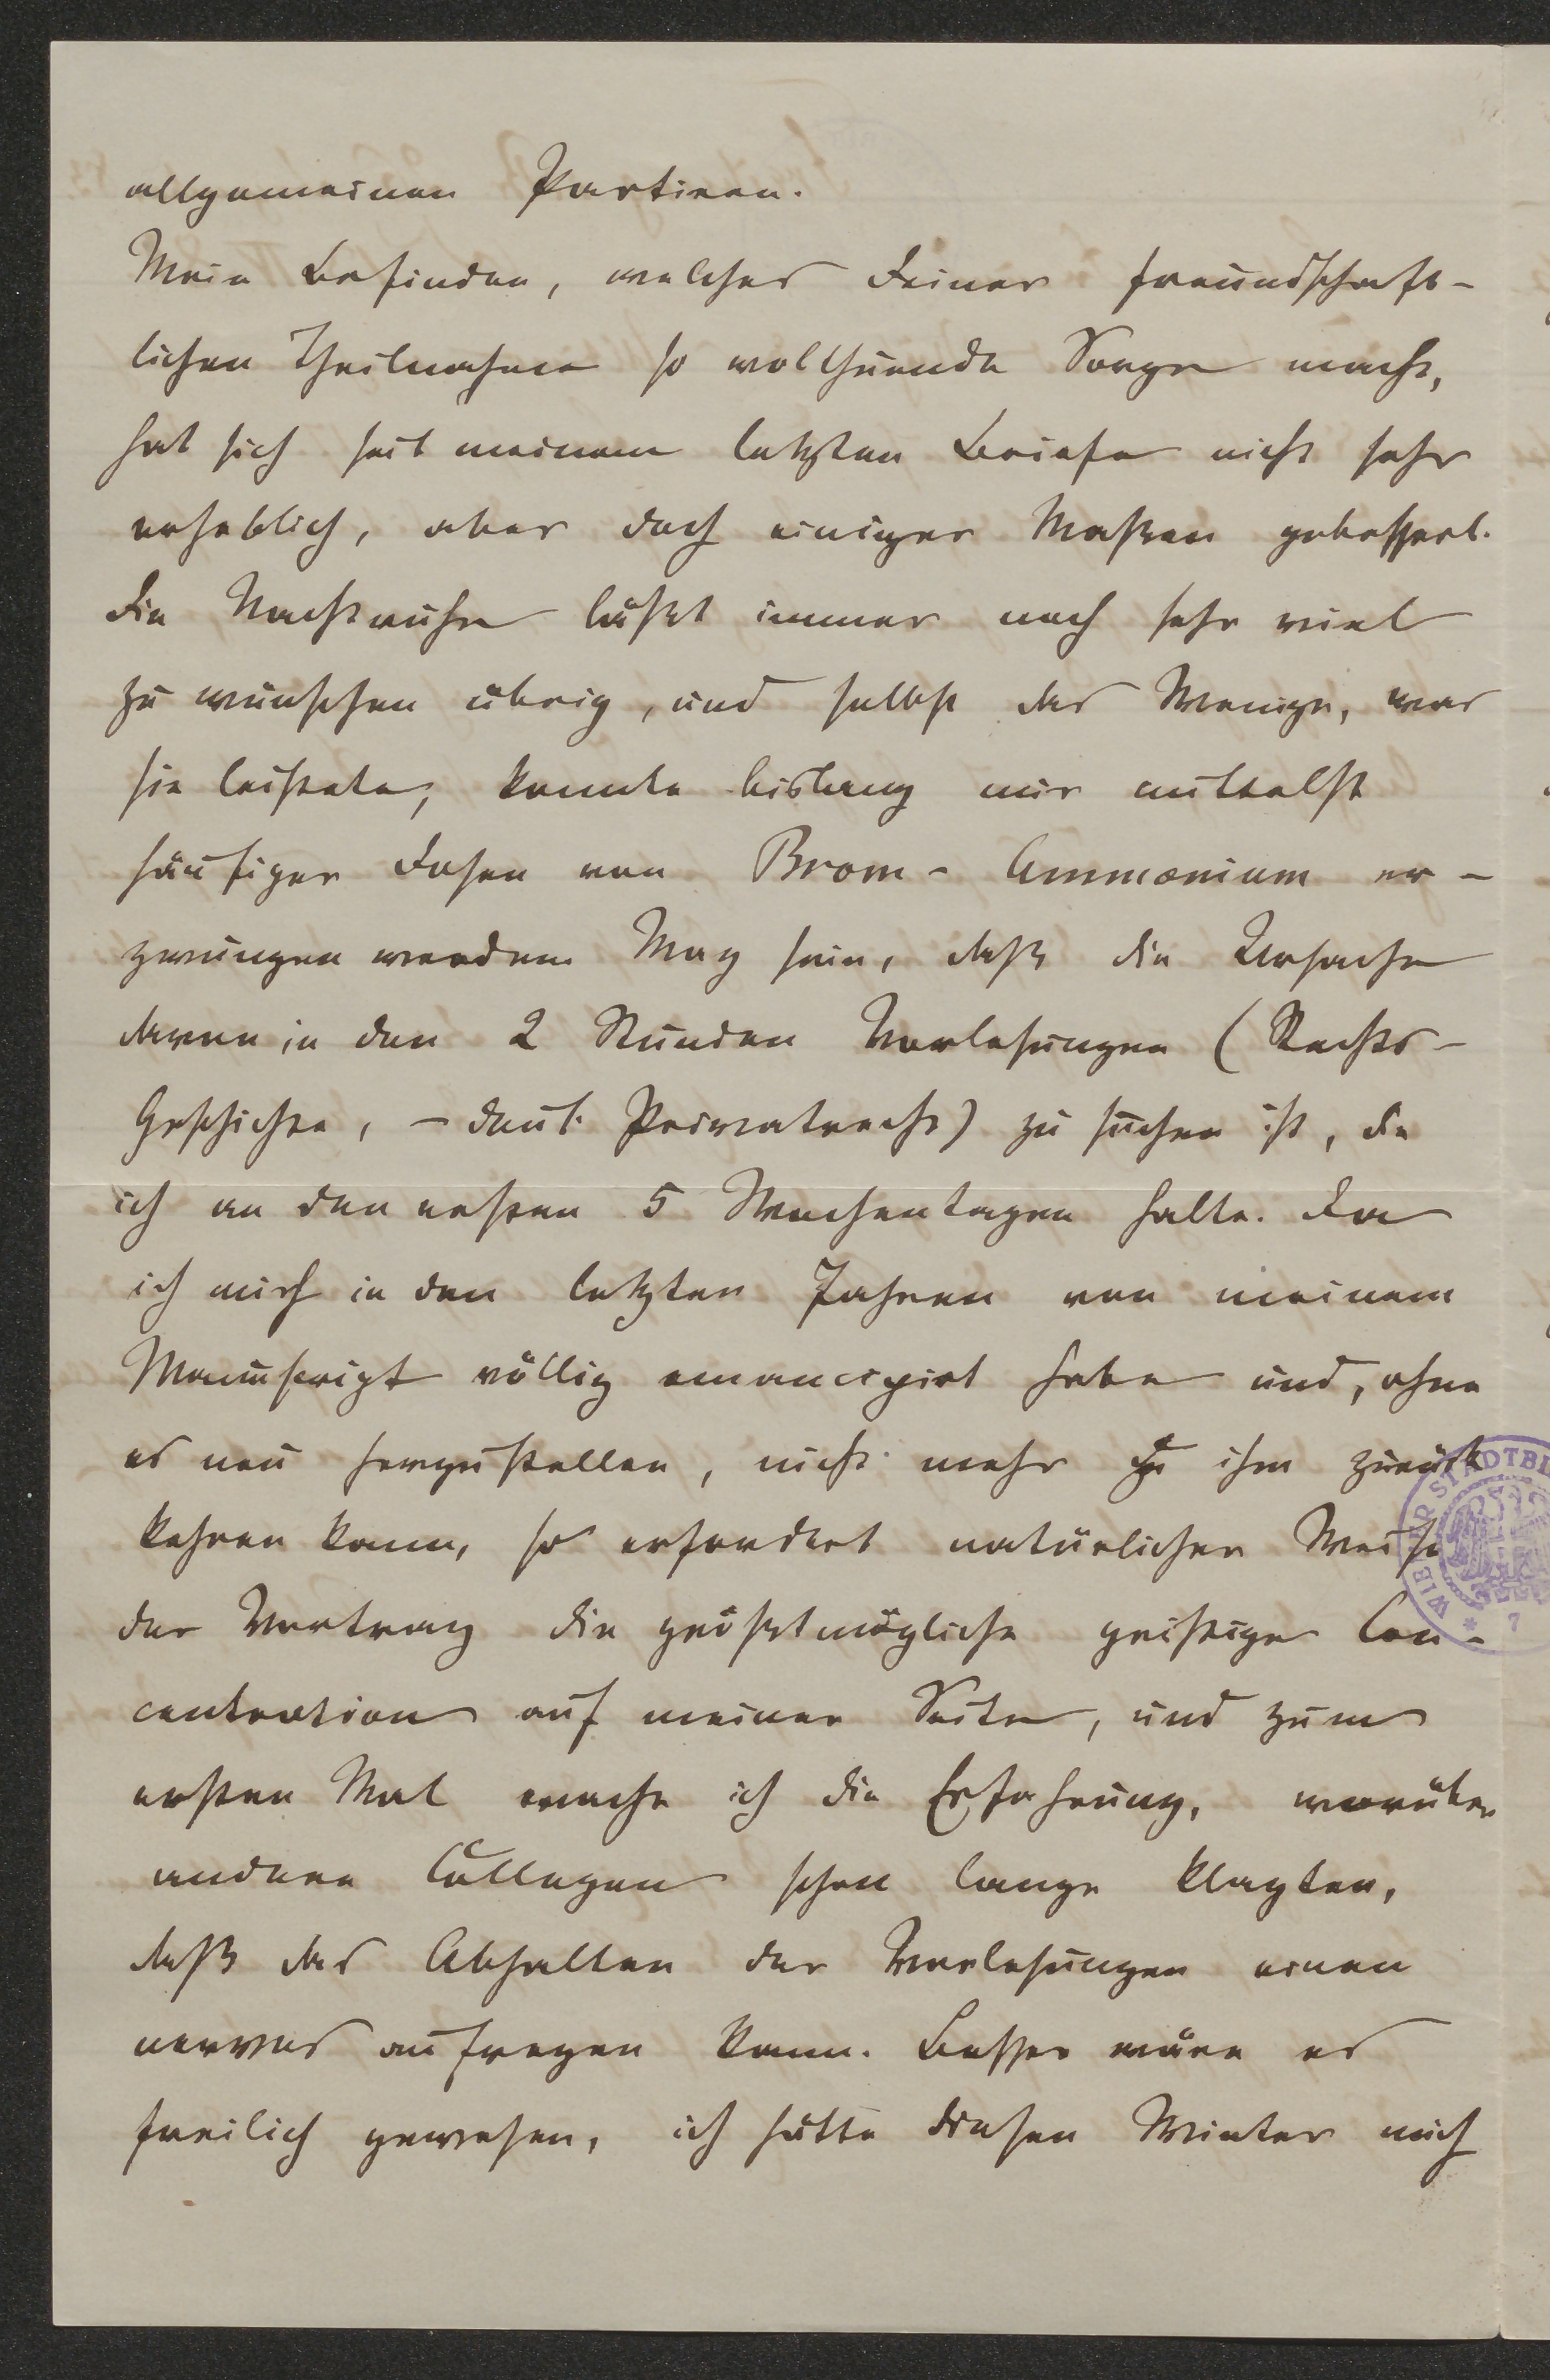 allgemeinen Partieen.
Mein Befinden, welches Deiner freundschaft-
lichen Theilnahme so wolthuende Sorge macht,
hat sich seit meinem letzten Briefe nicht sehr
erheblich, aber doch einiger Maßen gebessert.
Die Nachtruhe läßt immer noch sehr viel
zu wünschen übrig, und selbst das Wenige, was
sie leistete, konnte bislang nur mittelst
häufiger Dosen von Brom-Ammonium er-
zwungen werden. Mag sein, daß die Ursache
davon in den 2 Stunden Vorlesungen (Rechts-
Geschichte, – deut. Privatrecht) zu suchen ist, die
ich an den ersten 5 Wochentagen halte. Da
ich mich in den letzten Jahren von meinem
Manuscript völlig emancipirt habe und, ohne
es neu herzustellen, nicht mehr zu ihm zurück
kehren kann, so erfordert natürlicher Weise
der Vortrag die größtmögliche geistige Con-
centration auf meiner Seite, und zum
ersten Mal mache ich die Erfahrung, worüber
andere Collegen schon lange klagten,
daß das Abhalten der Vorlesungen einen
nervös aufregen kann. Besser wäre es
freilich gewesen, ich hätte diesen Winter mich
WIENER STADTBI
* 7